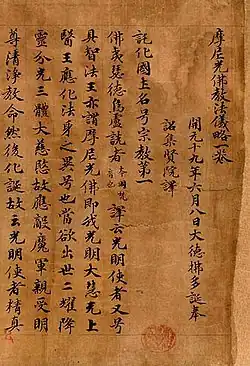 摩尼光佛教法儀略一卷
開元十九年六月八日大德拂多誕奉
詔集賢院譯
託化國土名号宗教第一
佛夷瑟德烏盧詵者本國梵音也譯云光明使者又号
具智法王亦謂摩尼光佛即我光明大慧无上
醫王應化法身之異号也當欲出世二耀降
靈分光三體大慈愍故應敵魔軍親受明
尊清淨教命然後化誕故云光明使者精真